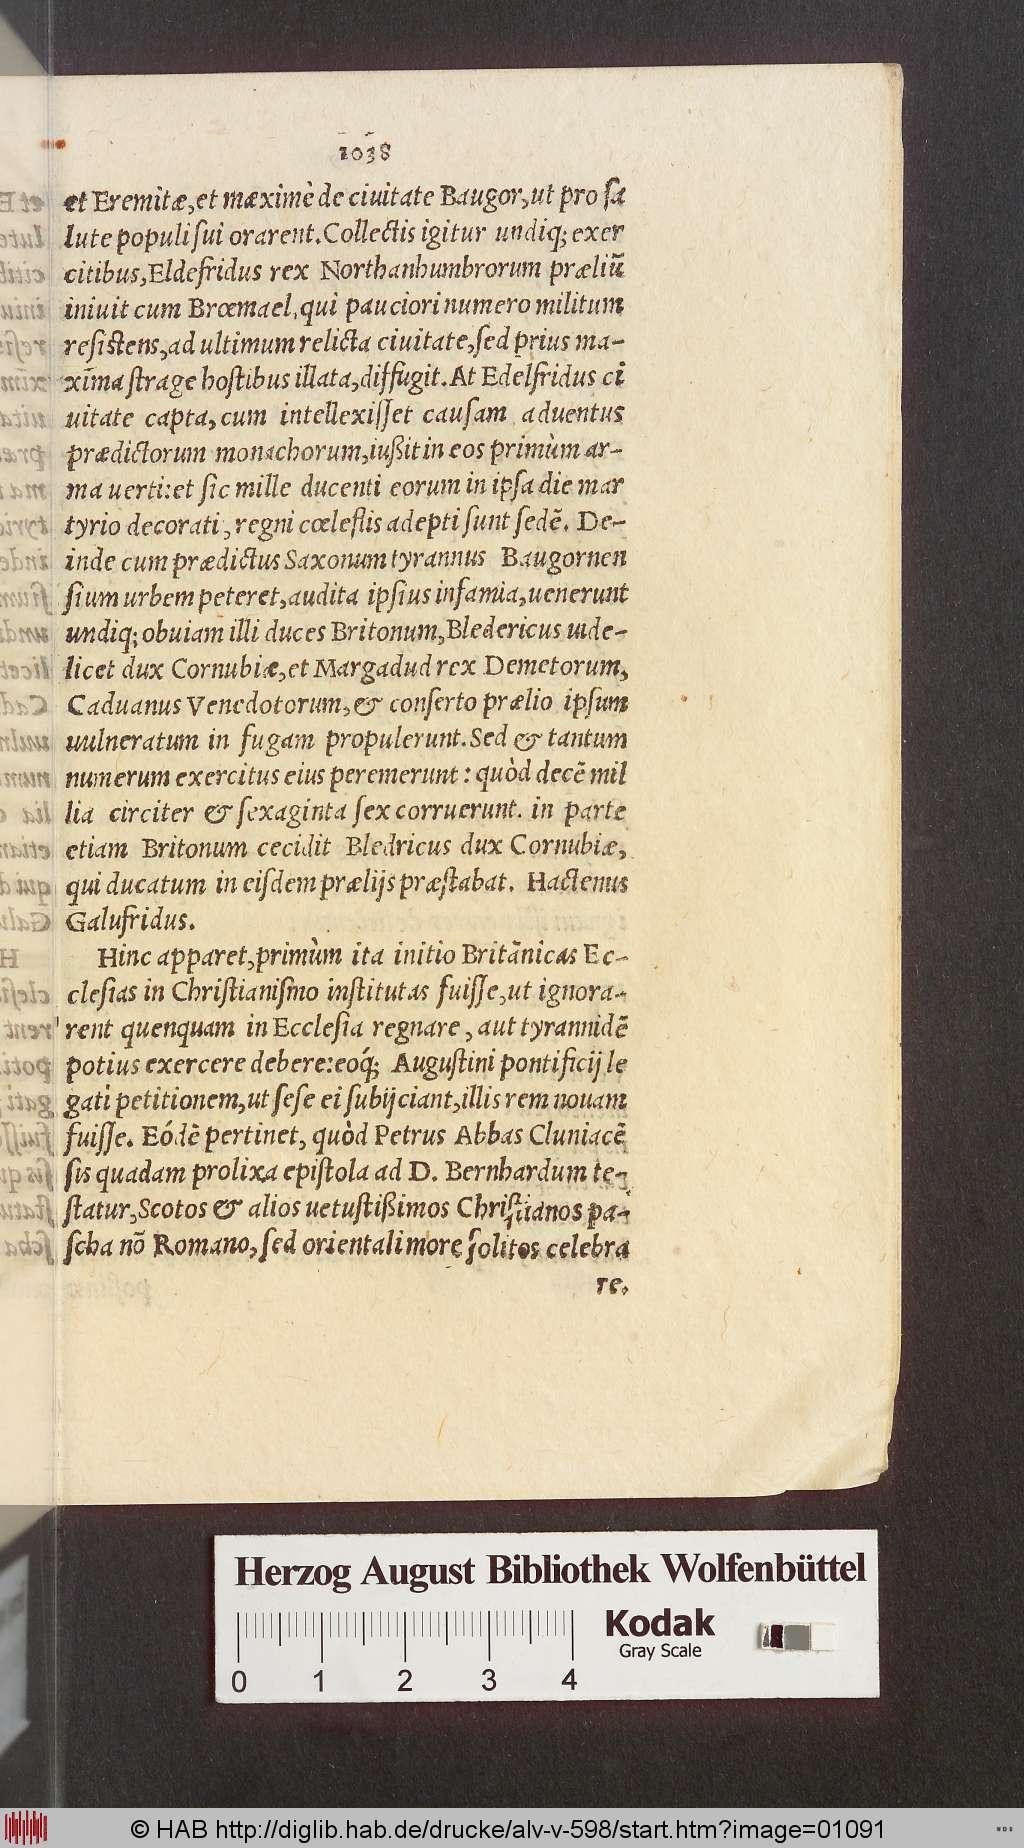 1038
et Eremitæ, et mæximè de ciuitate Baugor, ut pro ſa
lute populi ſui orarent. Collectis igitur undiq; exer
citibus, Eldefridus rex Northanhumbrorum præliũ
iniuit cum Brœmael, qui pauciori numero militum
reſistens, ad ultimum relicta ciuitate, ſed prius ma-
xĩma ſtrage hoſtibus illata, diffugit. At Edelfridus ci
uitate capta, cum intellexiſſet cauſam aduentus
prædictorum monachorum, iußit in eos primùm ar-
ma uerti: et ſic mille ducenti eorum in ipſa die mar
tyrio decorati, regni cœleſtis adepti ſunt ſedẽ. De-
inde cum prædictus Saxonum tyrannus Baugornen
ſium urbem peteret, audita ipſius infamia, uenerunt
undiq; obuiam illi duces Britonum, Bledericus uide-
licet dux Cornubiæ, et Margadud rex Demetorum,
Caduanus Venedotorum, & conſerto prælio ipſum
uulneratum in fugam propulerunt. Sed & tantum
numerum exercitus eius peremerunt: quòd decẽ mil
lia circiter & ſexaginta ſex corruerunt. in parte
etiam Britonum cecidit Bledricus dux Cornubiæ,
qui ducatum in eiſdem prælijs præſtabat. Hactenus
Galufridus.
Hinc apparet, primùm ita initio Britãnicas Ec-
cleſias in Chriſtianiſmo inſtitutas fuiſſe, ut ignora-
rent quenquam in Eccleſia regnare, aut tyrannidẽ
potius exercere debere: eoq́; Auguſtini pontificij le
gati petitionem, ut ſeſe ei ſubijciant, illis rem nouam
fuiſſe. Eódẽ pertinet, quòd Petrus Abbas Cluniacẽ
ſis quadam prolixa epiſtola ad D. Bernhardum te-
ſtatur, Scotos & alios uetuſtißimos Chriſtianos pa-
ſcha nõ Romano, ſed orientali more ſolitos celebra
re.
Herzog August Bibliothek Wolfenbüttel
Kodak
Gray Scale
0 1 2 3 4
© HAB http://diglib.hab.de/drucke/alv-v-598/start.htm?image=01091